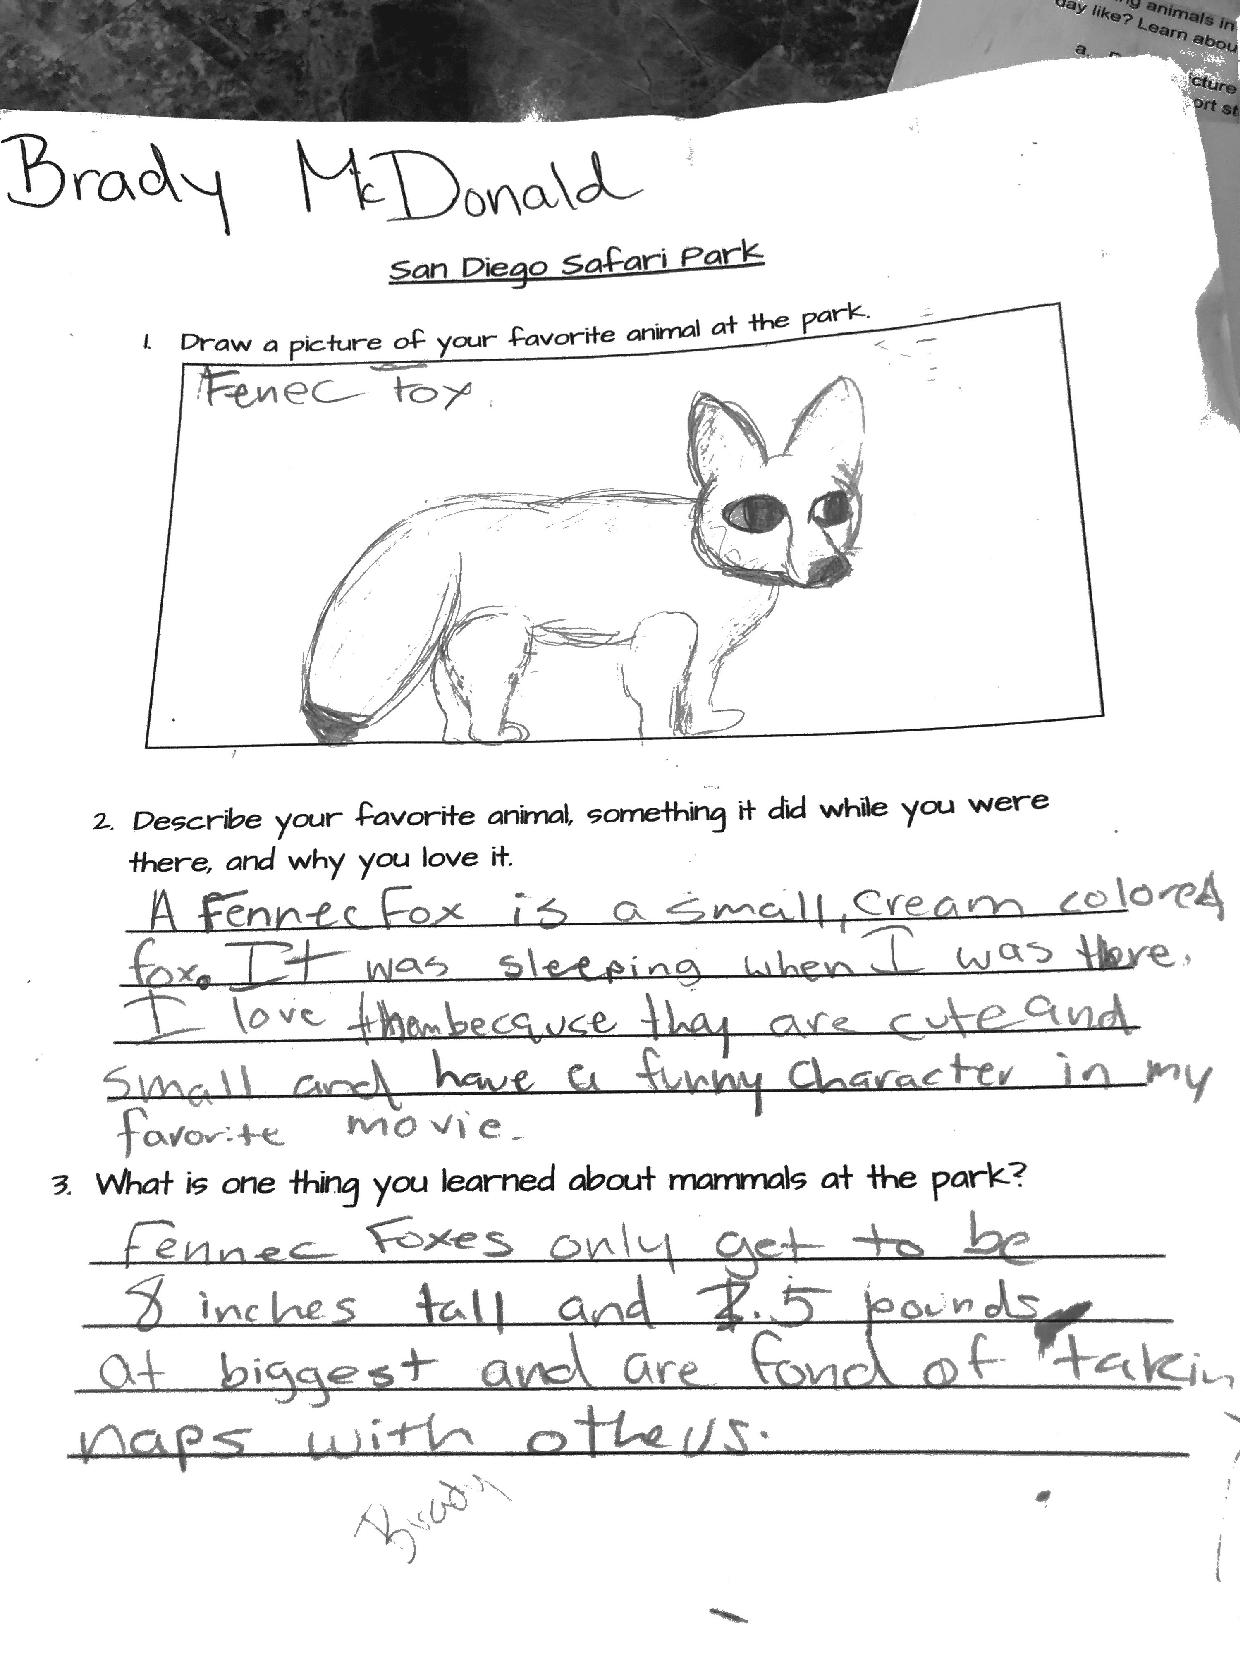 ng animals in
day like? Learn abou
a.
cture
ort st
Brady McDonald
San Diego Safari Park
1. Draw a picture of your favorite animal at the park.
Fenec fox
2. Describe your favorite animal, something it did while you were
there, and why you love it.
A Fennec Fox is a small, cream colored
fox. It was sleeping when I was there.
I love them because they are cute and
small and have a funny character in my
favorite movie.
3. What is one thing you learned about mammals at the park?
Fennec Foxes only get to be
8 inches tall and .5 pounds
at biggest and are fond of takin
naps with others.
Brady